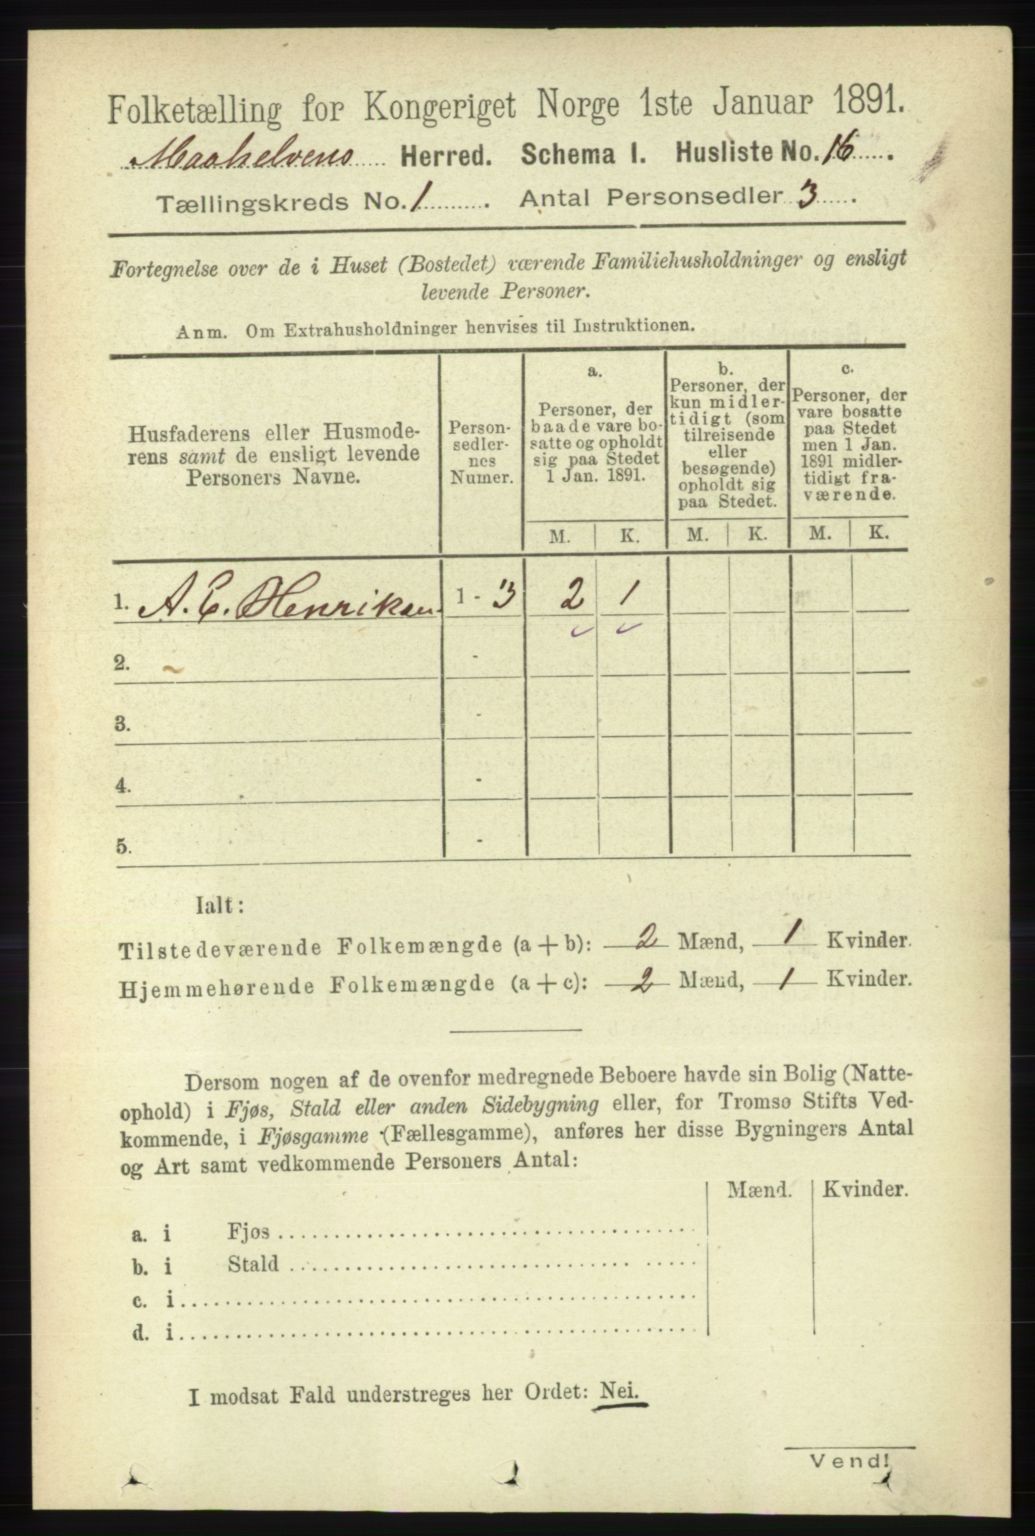 Folketælling for Kongeriget Norge 1ste Januar 1891.
Maalselvens Herred. Schema I. Husliste No. 16.
Tællingskreds No. 1. Antal Personsedler 3.
Fortegnelse over de i Huset (Bostedet) værende Familiehusholdninger og ensligt
levende Personer.
Anm. Om Extrahusholdninger henvises til Instruktionen.
Husfaderens eller Husmode-
rens samt de ensligt levende
Personers Navne.
Person-
sedler-
nes
Numer.
a.
Personer, der
baade vare bo-
satte og opholdt
sig paa Stedet
1 Jan. 1891.
b.
Personer, der
kun midler-
tidigt (som
tilreisende
eller
besøgende)
opholdt sig
paa Stedet.
c.
Personer, der
vare bosatte
paa Stedet
men 1 Jan.
1891 midler-
tidigt fra-
værende.
M. K. M. K. M. K.
1. A. E. Henriksen 1 - 3 2 1
2. -
3. -
4. -
5. -
Ialt:
Tilstedeværende Folkemængde (a + b): 2 Mænd, 1 Kvinder.
Hjemmehørende Folkemængde (a + c): 2 Mænd, 1 Kvinder.
Dersom nogen af de ovenfor medregnede Beboere havde sin Bolig (Natte-
ophold) i Fjøs, Stald eller anden Sidebygning eller, for Tromsø Stifts Ved-
kommende, i Fjøsgamme (Fællesgamme), anføres her disse Bygningers Antal
og Art samt vedkommende Personers Antal:
Mænd. Kvinder.
a. i Fjøs
b. i Stald
c. i
d. i
I modsat Fald understreges her Ordet: Nei.
Vend!